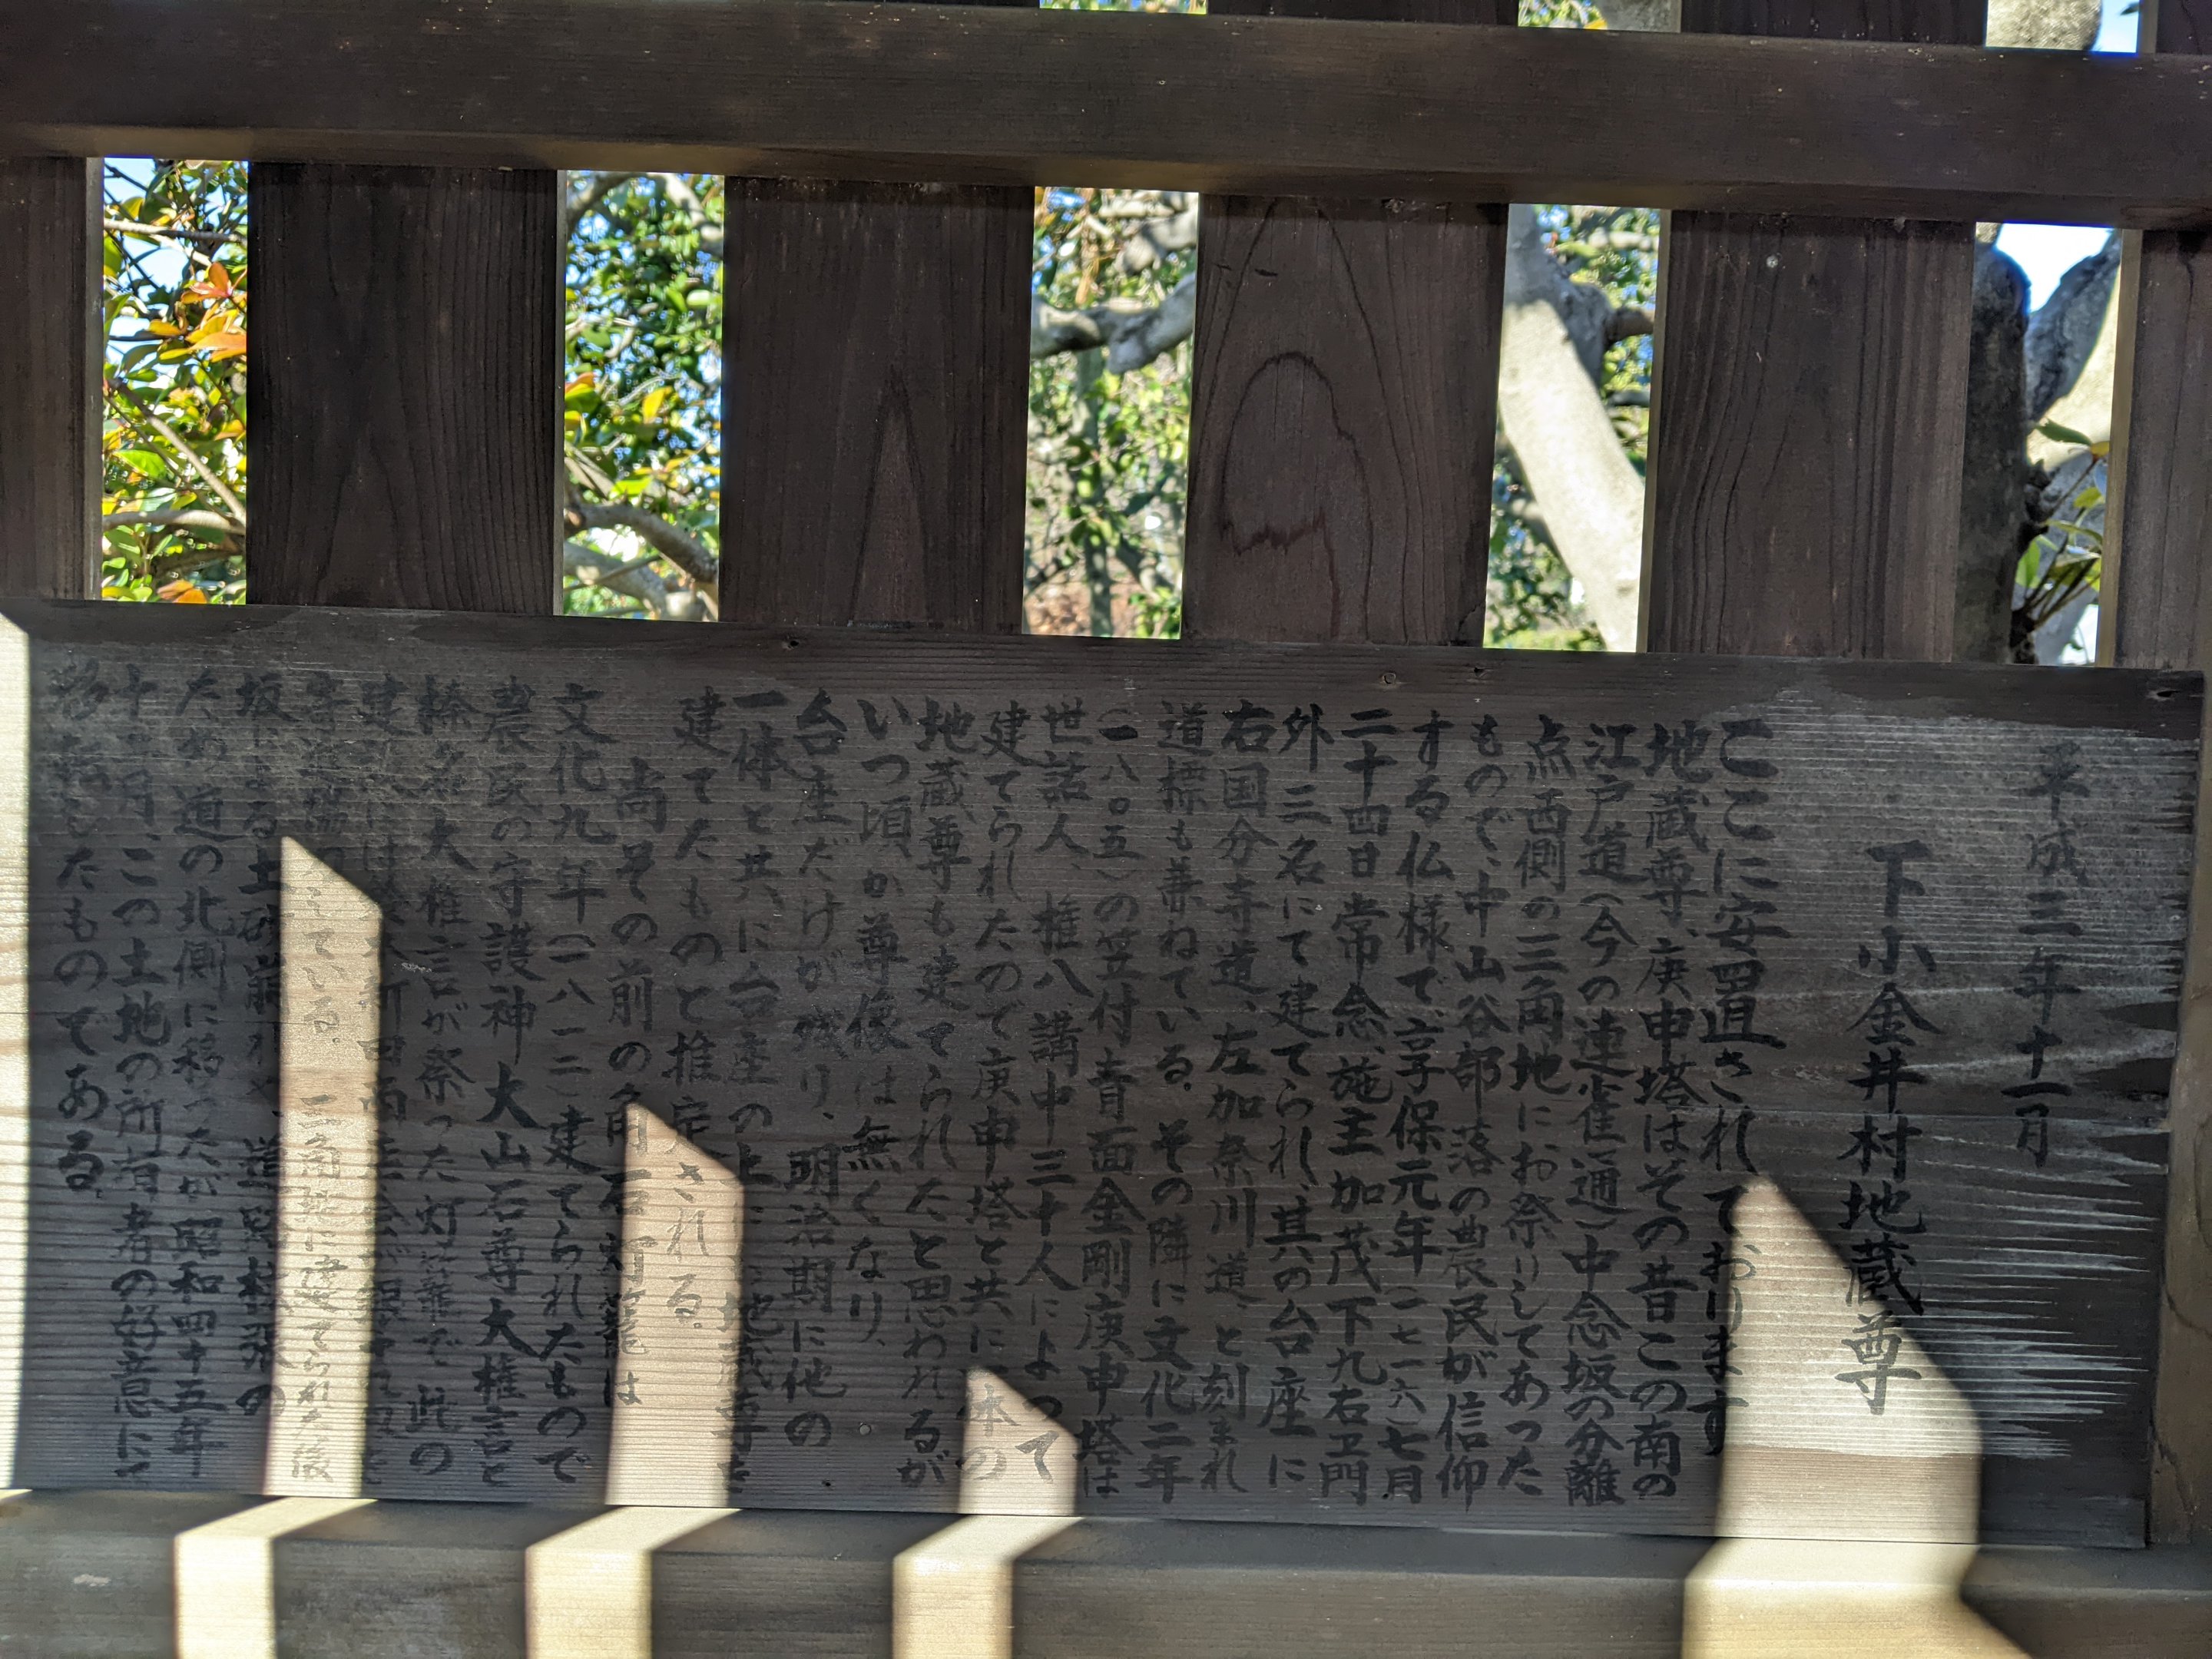 平成三年十一月
下小金井村地蔵尊
ここに安置されております
地蔵尊、庚申塔はその昔この南の
江戸道(今の連雀通)中念坂の分離
点西側の三角地にお祭りしてあった
もので、中山谷部落の農民が信仰
する仏様で、享保元年(一七一六)七月
二十四日常念、施主加茂下九右ヱ門
外三名にて建てられ、其の台座に
右国分寺道、左加奈川道、と刻まれ
道標も兼ねている。その隣に文化二年
(一八〇五)の笠付青面金剛庚申塔は
世話人、権八、講中三十人によって
建てられたので庚申塔と共に一体の
地蔵尊も建てられたと思われるが
いつ頃か尊像は無くなり、
台座だけが残り、明治期に他の
一体と共に台座の上に地蔵尊を
建てたものと推定される。
尚その前の角石灯籠は
文化九年(一八一二)建てられたもので
農民の守護神大山石尊大権言と
榛名大権言が祭った灯籠で此の
建
している。三角地に建てられた後
坂下よる土砂崩れや、道路拡張の
ため道の北側に移ったが昭和四十五年
十二月、この土地の所有者の好意にて
移転したものである。